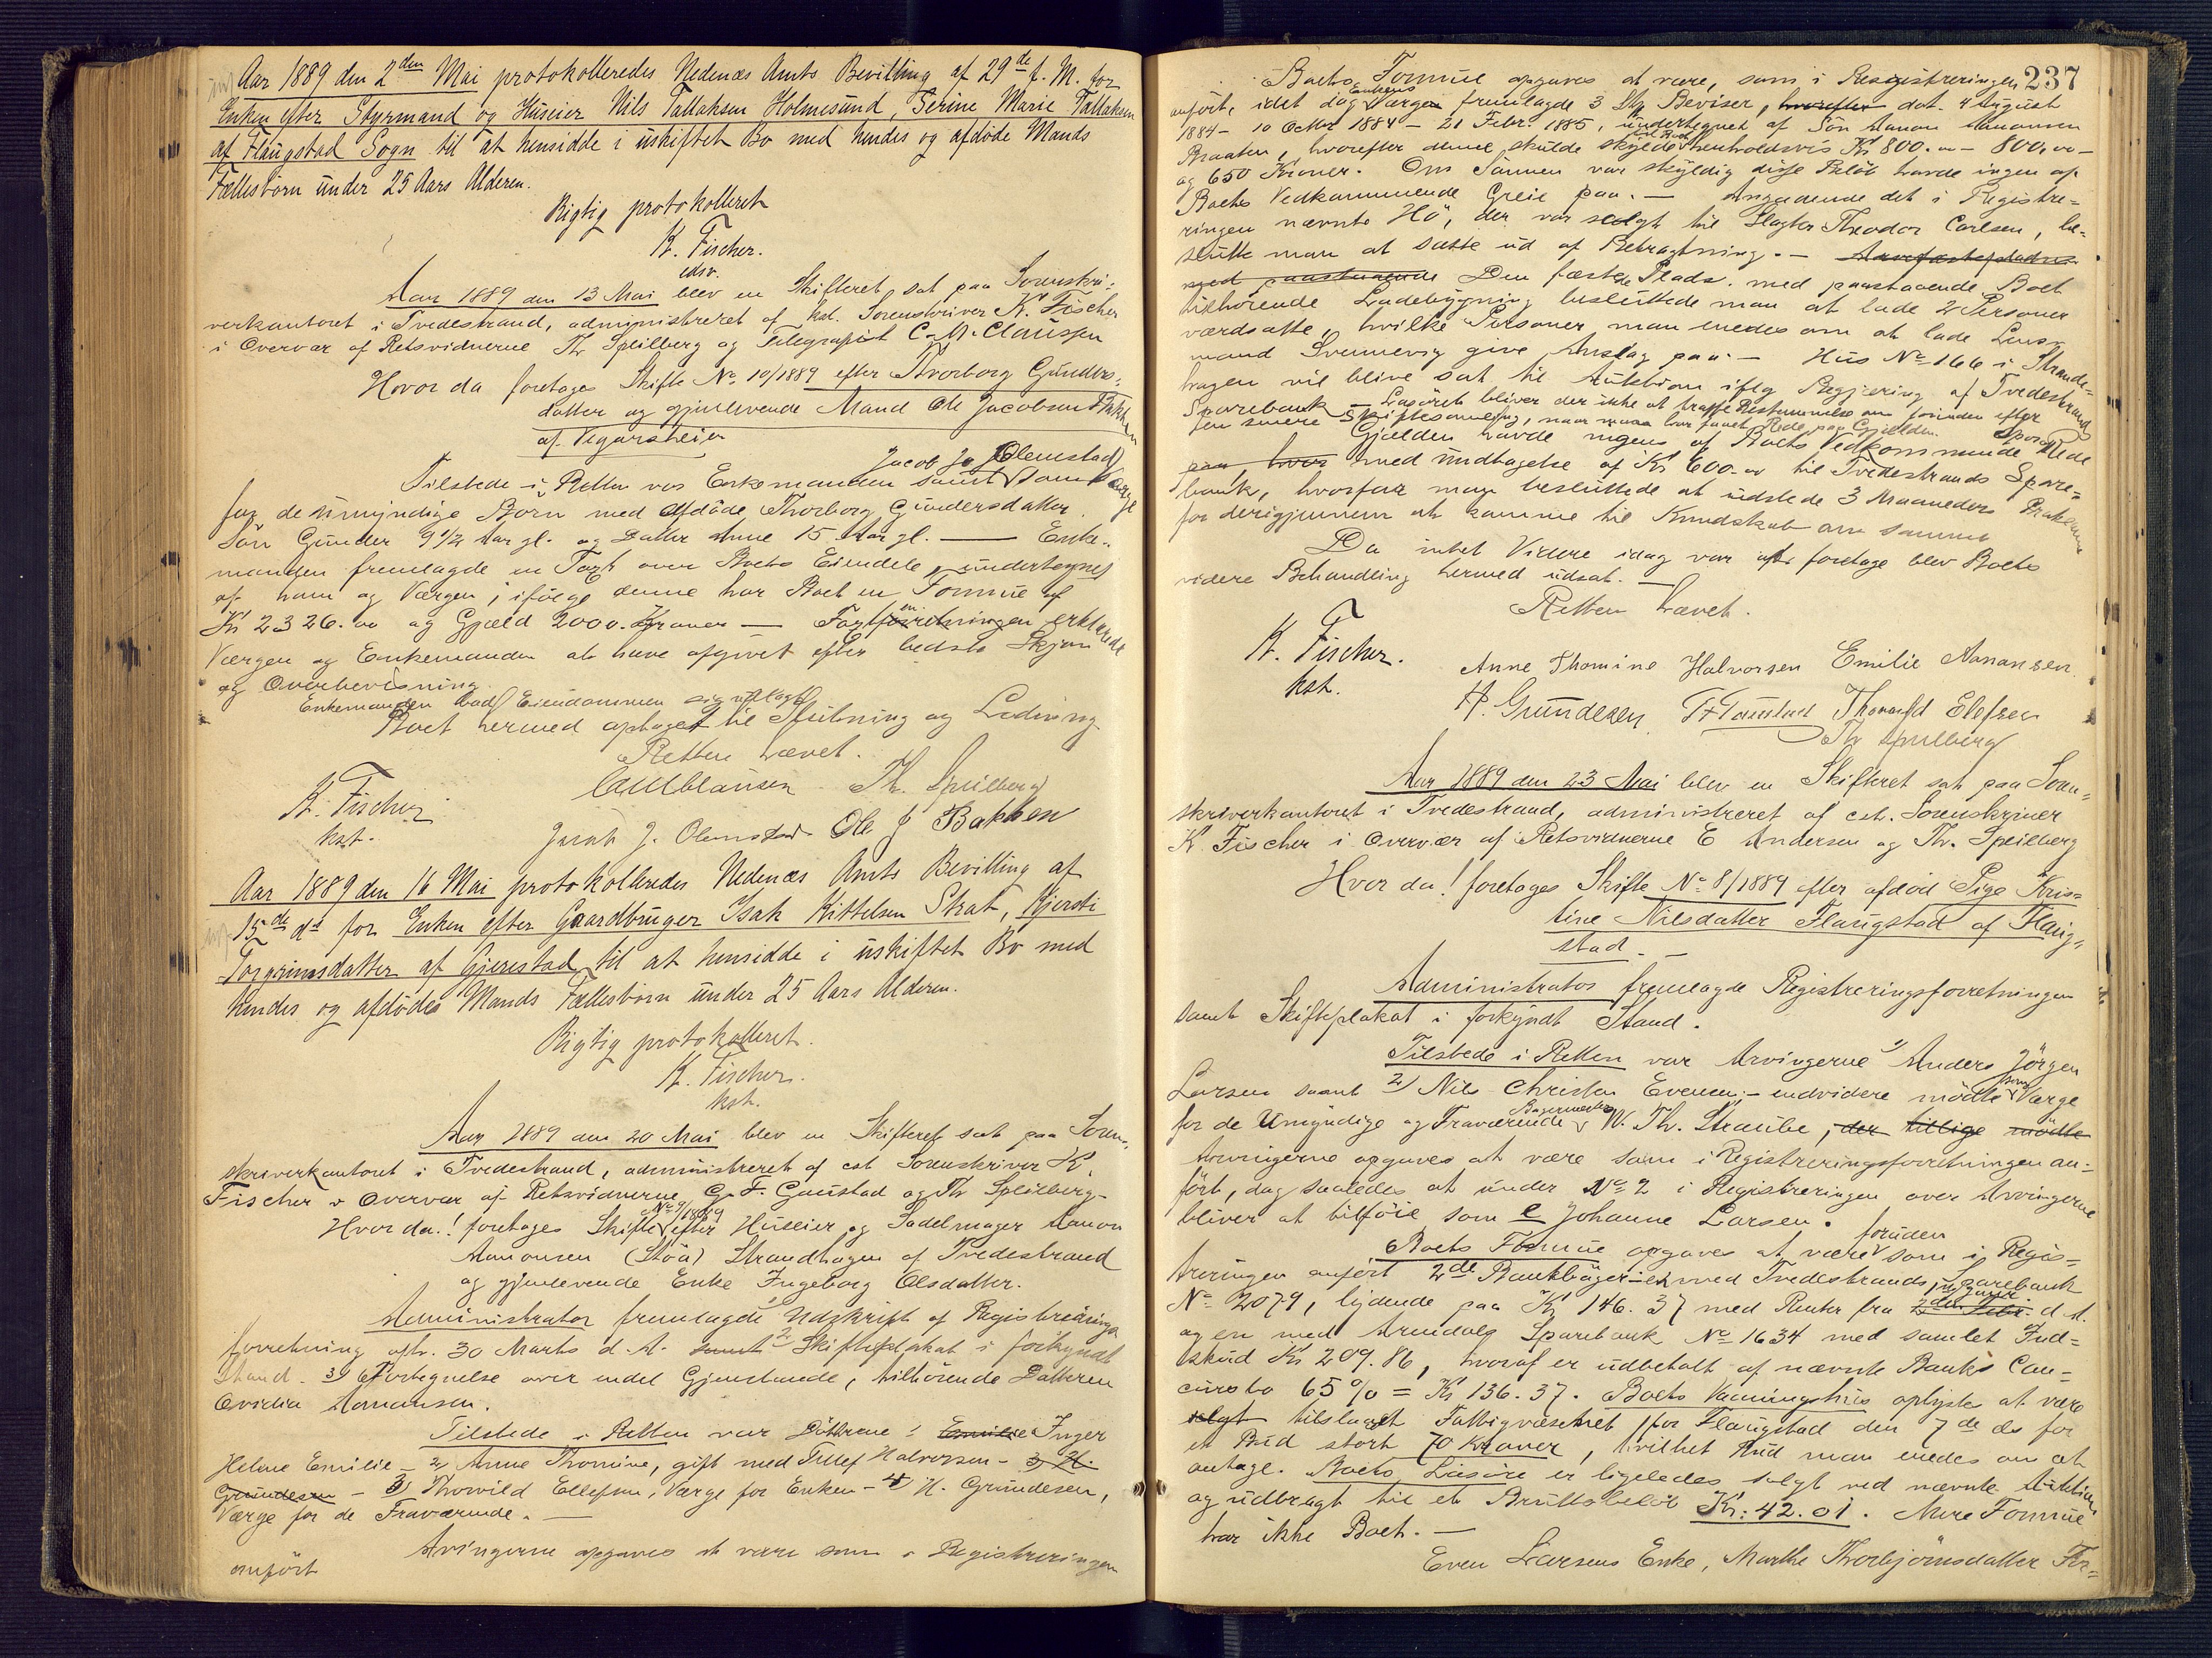 Aar 1889 den 2den Mai protokolleredes Nedenæs Amts Bevilling af 29de f. M. for
Enken efter Styrmand og Huseier Nils Tallaksen Holmesund, Serine Marie Tallaksen
af Flaugstad Sogn til at hensidde i uskiftet Bo med hendes og afdöde Mands
Fællesbörn under 25 Aars Alderen.
Rigtig protokolleret
K. Fischer.
cst.
Aar 1889 den 13 Mai blev en Skifteret sat paa Sorenskri-
verkontoret i Tvedestrand, administreret af kst. Sorenskriver K. Fischer
i Overvær af Retsvidnerne Th Speilberg og Telegrafist C. M. Claussen
Hvor da foretages Skifte No 10/1889 efter Thorborg Gunders-
datter og gjenlevende Mand Ole Jacobsen Bakken
af Vegarsheien
Jacob J. Olemstad
Tilstede i Retten var Enkemanden samt som Værge
for de umyndige Börn med Afdöde Thorborg Gundersdatter.
Sön Gunder 9 1/2 Aar gl. og Datter Anne 15 Aar gl. — Enke-
manden fremlagde en Taxt over Boets Eiendele, undertegnet
af ham og Værgen, ifölge denne har Boet en Formue af
Kr 2326.00 og Gjæld 2000. Kroner — Taxtforretningen erklærede
Værgen og Enkemanden at have afgivet efter bedste Skjön
og Overbevisning.
Enkemanden bad Eiendommen sig udlagt
Boet hermed optaget til Slutning og Lodning
Retten hævet.
K. Fischer
kst.
CMClausen Th. Speilberg
Jacob J. Olemstad Ole J Bakken
Aar 1889 den 16 Mai protokolleredes Nedenæs Amts Bevilling af
15de ds for Enken efter Gaardbruger Isak Kittelsen Strat, Kjersti
Torgrimsdatter af Gjerestad til at hensidde i uskiftet Bo med
hendes og afdödes Mands Fællesbörn under 25 Aars Alderen.
Rigtig protokolleret.
K. Fischer.
kst.
Aar 1889 den 20 Mai blev en Skifteret sat paa Soren-
skriverkontoret i Tvedestrand, administreret af cst Sorenskriver K.
Fischer i Overvær af Retsvidnerne G. F. Gaustad og Th Speilberg
Hvor da! foretages Skifte No 9/1889 efter Huseier og Sadelmager Aanon
Aanonsen (Stöa) Strandhagen af Tvedestrand
og gjenlevende Enke Ingeborg Olsdatter.
Administrator fremlagde Udskrift af Registrerings-
forretning afh. 30 Marts d. A. samt 2) Skifteplakat i forkyndt
Stand. 3) Fortegnelse over endel Gjenstande, tilhörende Datteren
Ovidia Aanonsen.
Tilstede i Retten var Döttrene: Emilie Inger
Helene Emilie — 2) Anne Thomine, gift med Tellef Halvorsen — 3) H.
Grundesen — 3) Thorvild Ellefsen, Værge for Enken — 4 H. Grundesen,
Værge for de Fraværende. —
Arvingerne opgaves at være som i Registreringen
anfört
237
Boets Formue opgaves at være, som i Registreringen
anfört, idet dog Enkens Værge fremlagde 3 Stkr Beviser, hvorefter dat. 4 August
1884 — 10 Octbr 1884 — 21 Febr. 1885, undertegnet af Sön Aanon Aanonsen
Braaten, hvorefter denne skulde skylde til Boet henholdsvis Kr 800.00 — 800.00 —
og 650 Kroner. Om Sönnen var skyldig disse Belöb havde ingen af
Boets Vedkommende Greie paa. — Angaaende det i Registre-
ringen nævnte Hö, der var solgt til Slagter Theodor Carlsen, be-
sluttede man at sætte ud af Betragtning. —
med paastaaende Den fæstede Plads. med paastaaende Boet
tilhörende Ladebygning besluttede man at lade 2 Personer
værdsætte, hvilke Personer man enedes om at lade Lens-
mand Svennevig give Anslag paa. — Hus No 166 i Strand-
hagen vil blive sat til Auktion ifölg Begjæring af Tvedestrand
Sparebank — Lösöret bliver der ikke at træffe Bestemmelse om forinden efter
en senere Skiftesamling, naar man har faaet Rede paa Gjælden.
Gjælden havde ingen af Boets Vedkommende Rede
paa, hvor med undtagelse af Kr 600.00 til Tvedestrands Spare-
bank, hvorfor man besluttede at udstede 3 Maaneders Proklama
for derigjennem at komme til Kundskab om samme
Da intet Videre idag var at foretage blev Boets
videre Behandling hermed udsat. —
Retten hævet.
K. Fischer.
kst.
Anne Thomine Halvorsen Emilie Aanansen.
H. Grundesen GFGaustad Thorvald Elefsen
Th Speilberg
Aar 1889 den 23 Mai blev en Skifteret sat paa Soren-
skriverkontoret i Tvedestrand, administreret af cst. Sorenskriver
K Fischer i Overvær af Retsvidnerne E Andersen og Th. Speilberg
Hvor da! foretages Skifte No 8/1889 efter afdöd Pige Kris-
tine Nilsdatter Flaugstad af Flaug-
stad.
Administrator fremlagde Registreringsforretningen
samt Skifteplakat i forkyndt Stand.
Tilstede i Retten var Arvingerne 1) Anders Jörgen
Larsen samt 2) Nils Christen Evensen — endvidere mödte som Værge
for de Umyndige og Fraværende Bagermester W. Th. Straube, der tillige mödte
Arvingerne opgaves at være som i Registreringsforretningen an-
fört, dog saaledes at under No 2 i Registreringen over Arvingerne
bliver at tilföie som e Johanne Larsen.
Boets Formue opgaves at være foruden som i Regis-
treringen anfört 2de Bankböger — en med Tvedestrands Sparebank
No 2079, lydende paa Kr 146.37 med Renter fra 1 Januar d A.
og en med Arendals Sparebank No 1634 med samlet Ind-
skud Kr 209.86, hvoraf er udbetalt af nævnte Banks Con-
cursbo 65 % = Kr 136.37. Boets Vaaningshus oplystes at være
solgt tilslaaet Fattigvæsenet for Flaugstad den 7de ds for
et Bud stort 70 Kroner, hvilket Bud man enedes om at
antage. Boets Lösöre er ligeledes solgt ved nævnte Auktion
og udbragt til et Bruttobelöb Kr: 42.01. Mere Formue
har ikke Boet. —
Even Larsens Enke, Marthe Thorbjörnsdatter For-